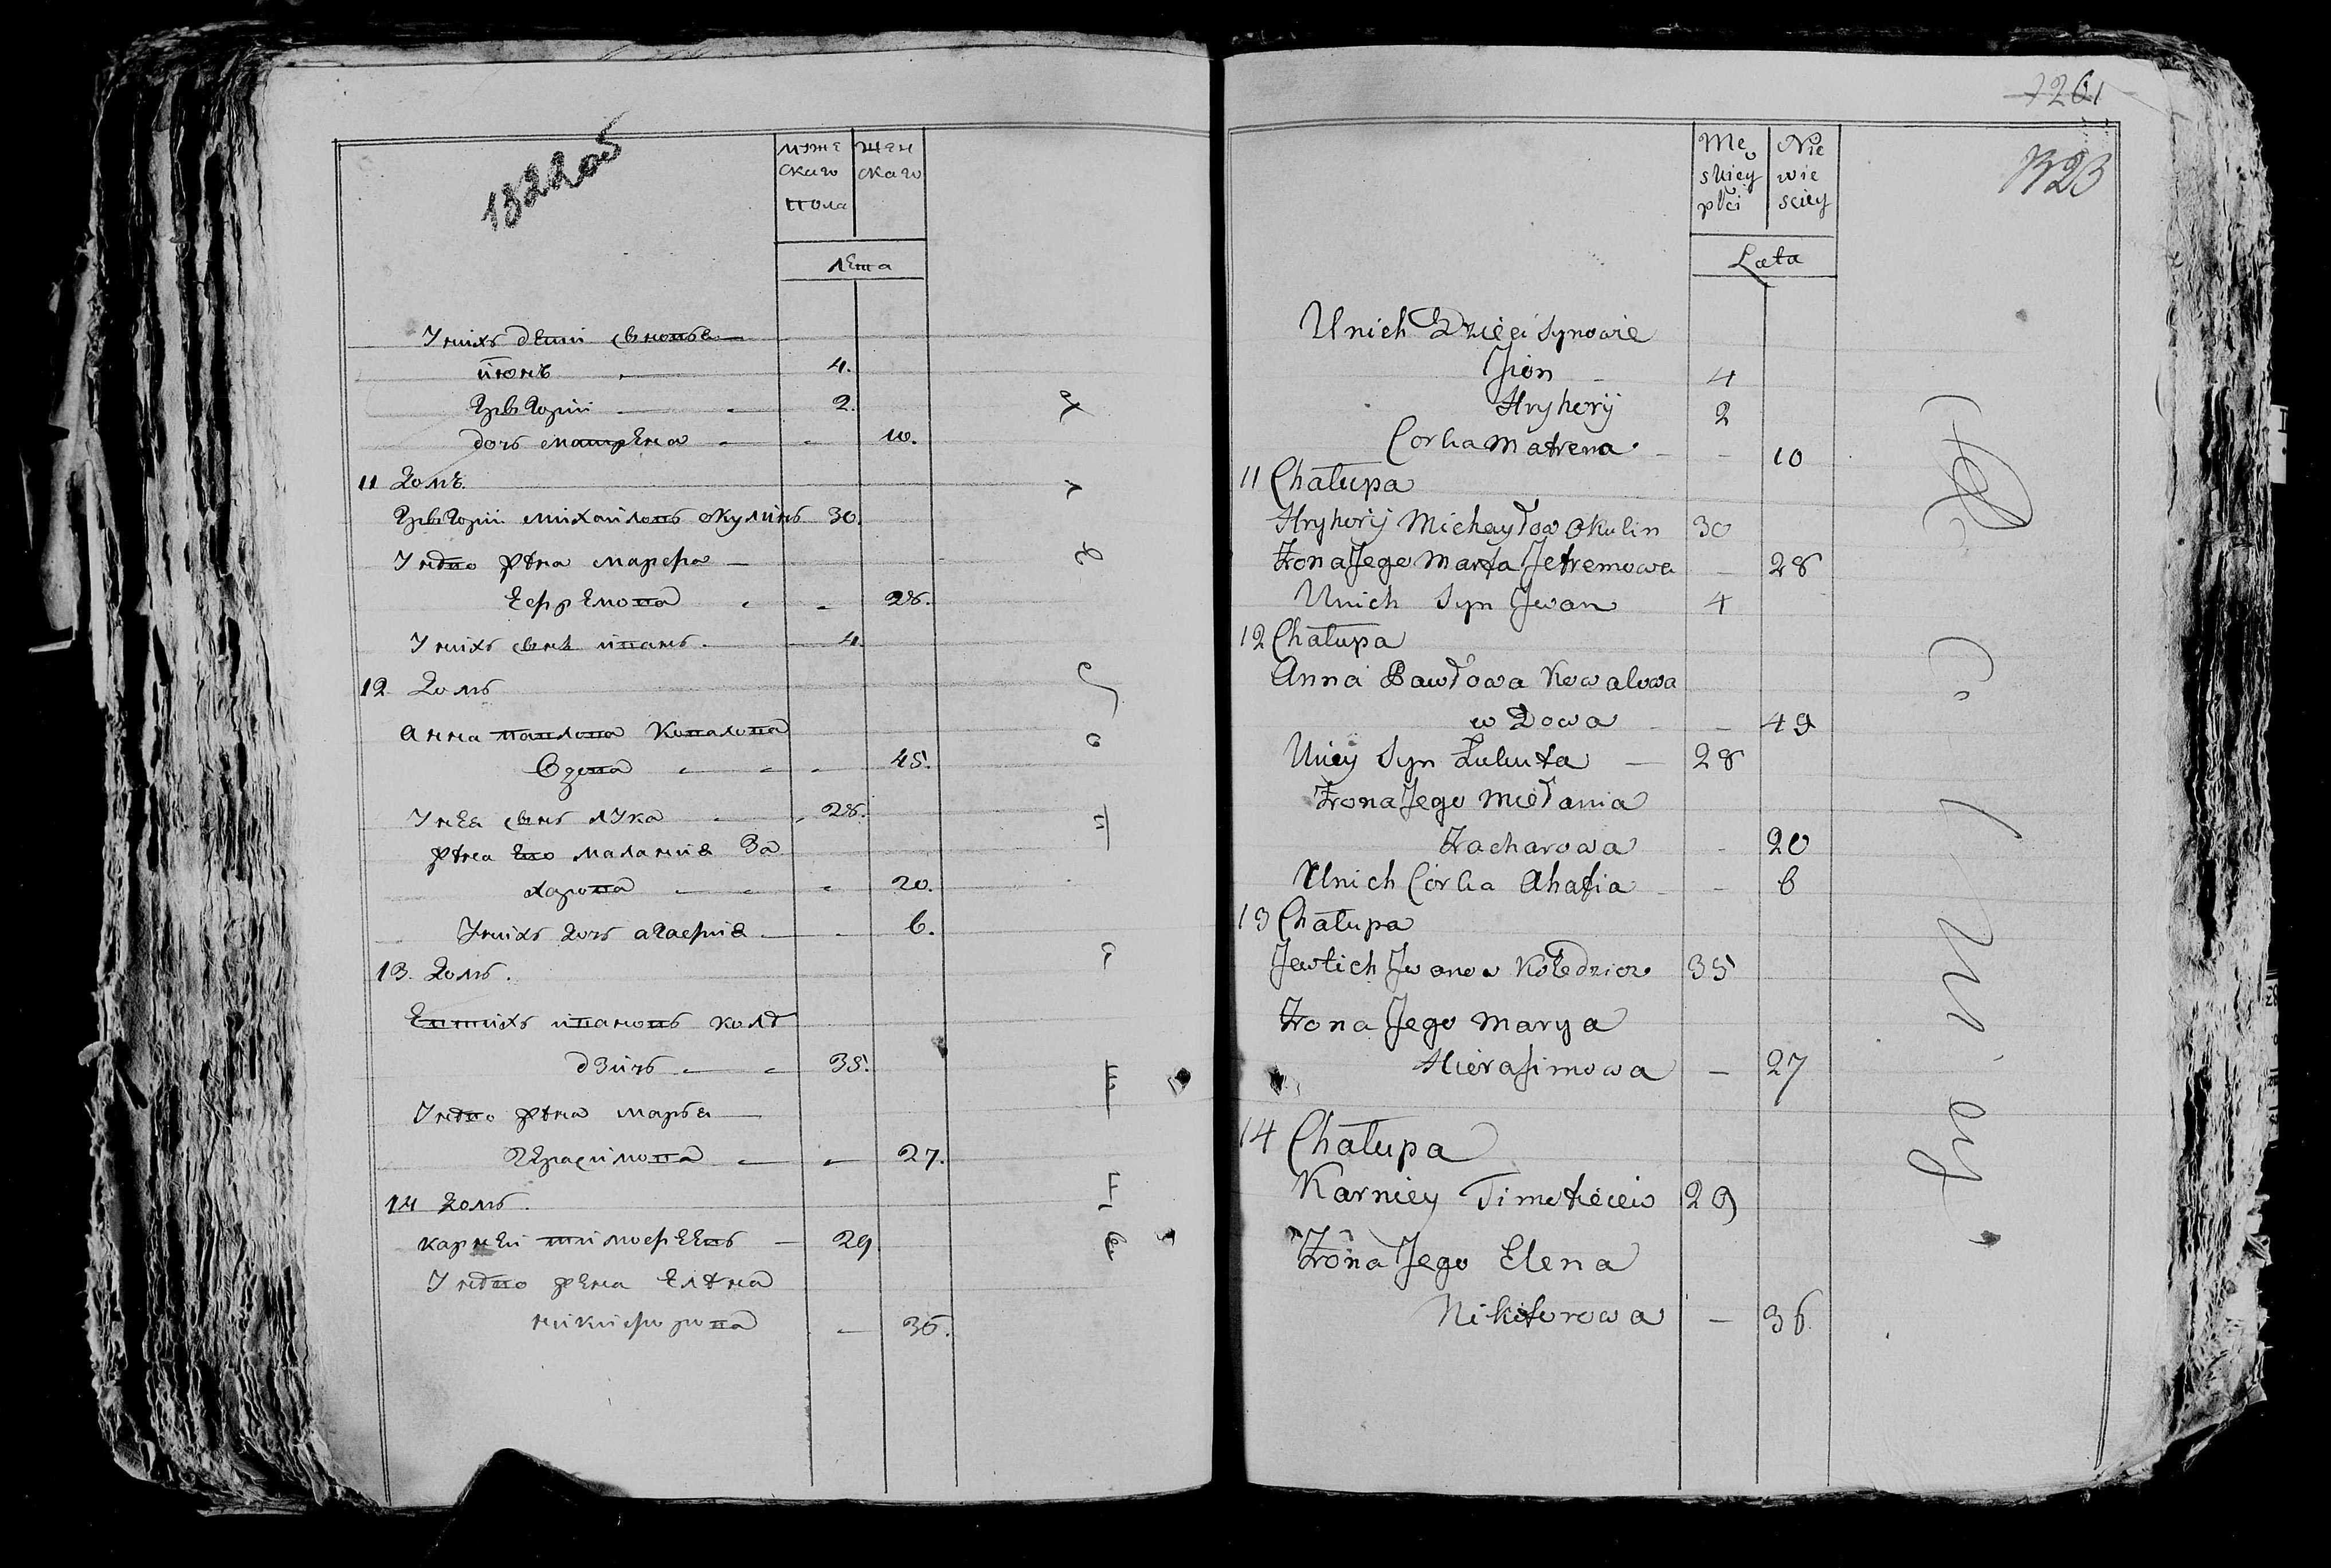 муже
скаго
пола
жен
скаго
лета
У нихъ дети сыновья
июнъ 4.
Григорий 2.
дочь матрена 10.
11 Домъ.
Григорий михайловъ окулинъ 30.
У него жена марфа
Ефремова 28.
У нихъ сынъ иванъ 4.
12 Домъ
Анна павлова Ковалова
вдова 45.
У нея сынъ лука 28.
жена его малания За
харова 20.
У нихъ дочь агафия 6.
13. Домъ.
Евтихъ ивановъ коле
дзичъ 35.
У него жена марья
Герасимова 27.
14 Домъ.
карней тимофеевъ 29
У него жена Елена
никифорова 36.
Męskiey płci
Niewiesciey
Lata
U nich Dzieci Synowie
Jion 4
Hryhory 2
Corka Matrena 10
11 Chałupa
Hryhory Michayłow Okulin 30
Żona Jego Marfa Jefremowa 28
U nich Syn Jwan 4
12 Chałupa
Anna Pawłowa Kowalowa
wdowa 49
U niey Syn Łukuta 28
Żona Jego Miełania
Zacharowa 20
U nich Corka Ahafia 6
13 Chałupa
Jewtich Jwanow Koledzicz 35
Żona Jego Marya
Hierasimowa 27
14 Chałupa
Karniey Timofieiew 29
Żona Jego Elena
Nikiforowa 36